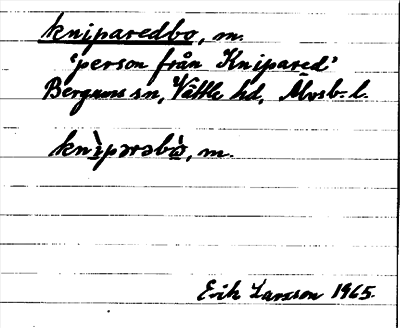 kniparedbo, m.
'person från Knipared'
Bergums sn, Vättle hd, Älvsb. l.
knìpərəbò, m.
Erik Larsson 1965.